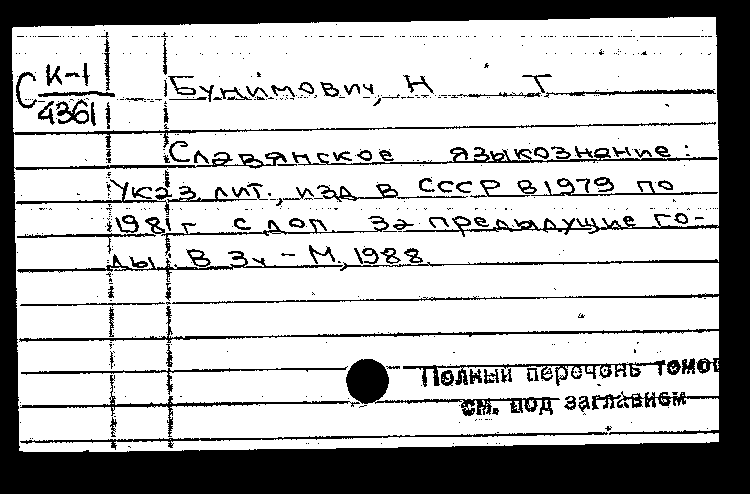 С К-1
4361
Бунимович, Н Т
Славянское языкознание:
Указ лит., изд в СССР в 1979 по
1981 г с доп за предыдущие го-
ды. В 3ч – М., 1988.
Полный перечень томов
см. под заглавием